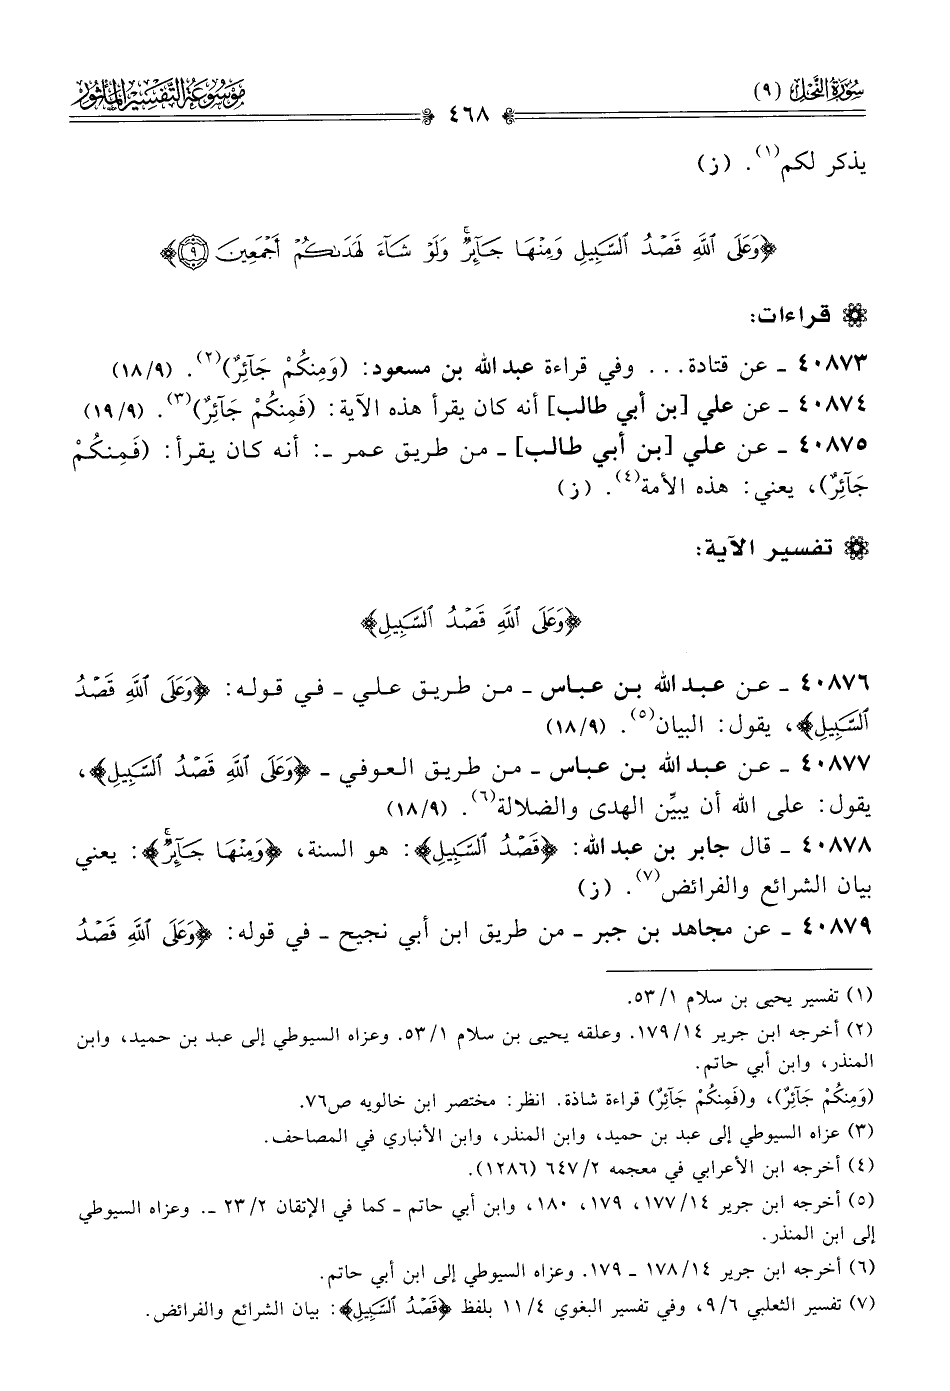 سُورَةُ النَّحْل (٩)
موسوعة التفسير المأثور
٤٦٨
يذكر لكم(١). (ز)
﴿وَعَلَى ٱللَّهِ قَصْدُ ٱلسَّبِيلِ وَمِنْهَا جَآئِرٌ ۚ وَلَوْ شَآءَ لَهَدَىٰكُمْ أَجْمَعِينَ ٩﴾
قراءات:
٤٠٨٧٣ ـ عن قتادة... وفي قراءة عبد الله بن مسعود: (وَمِنكُمْ جَآئِرٌ)(٢). (١٨/٩)
٤٠٨٧٤ ـ عن علي [بن أبي طالب] أنه كان يقرأ هذه الآية: (فَمِنكُمْ جَآئِرٌ)(٣). (١٩/٩)
٤٠٨٧٥ ـ عن علي [بن أبي طالب] ـ من طريق عمر ـ: أنه كان يقرأ: (فَمِنكُمْ
جَآئِرٌ)، يعني: هذه الأمة(٤). (ز)
تفسير الآية:
﴿وَعَلَى ٱللَّهِ قَصْدُ ٱلسَّبِيلِ﴾
٤٠٨٧٦ ـ عن عبد الله بن عباس ـ من طريق علي ـ في قوله: ﴿وَعَلَى ٱللَّهِ قَصْدُ
ٱلسَّبِيلِ﴾، يقول: البيان(٥). (١٨/٩)
٤٠٨٧٧ ـ عن عبد الله بن عباس ـ من طريق العوفي ـ ﴿وَعَلَى ٱللَّهِ قَصْدُ ٱلسَّبِيلِ﴾،
يقول: على الله أن يبيِّن الهدى والضلالة(٦). (١٨/٩)
٤٠٨٧٨ ـ قال جابر بن عبد الله: ﴿قَصْدُ ٱلسَّبِيلِ﴾: هو السنة، ﴿وَمِنْهَا جَآئِرٌ ۚ﴾: يعني
بيان الشرائع والفرائض(٧). (ز)
٤٠٨٧٩ ـ عن مجاهد بن جبر ـ من طريق ابن أبي نجيح ـ في قوله: ﴿وَعَلَى ٱللَّهِ قَصْدُ
(١) تفسير يحيى بن سلام ٥٣/١.
(٢) أخرجه ابن جرير ١٧٩/١٤. وعلقه يحيى بن سلام ٥٣/١. وعزاه السيوطي إلى عبد بن حميد، وابن
المنذر، وابن أبي حاتم.
(وَمِنكُمْ جَآئِرٌ)، و(فَمِنكُمْ جَآئِرٌ) قراءة شاذة. انظر: مختصر ابن خالويه ص٧٦.
(٣) عزاه السيوطي إلى عبد بن حميد، وابن المنذر، وابن الأنباري في المصاحف.
(٤) أخرجه ابن الأعرابي في معجمه ٦٤٧/٢ (١٢٨٦).
(٥) أخرجه ابن جرير ١٧٧/١٤، ١٧٩، ١٨٠، وابن أبي حاتم ـ كما في الإتقان ٢٣/٢ ـ. وعزاه السيوطي
إلى ابن المنذر.
(٦) أخرجه ابن جرير ١٧٨/١٤ ـ ١٧٩. وعزاه السيوطي إلى ابن أبي حاتم.
(٧) تفسير الثعلبي ٩/٦، وفي تفسير البغوي ١١/٤ بلفظ ﴿قَصْدُ ٱلسَّبِيلِ﴾: بيان الشرائع والفرائض.